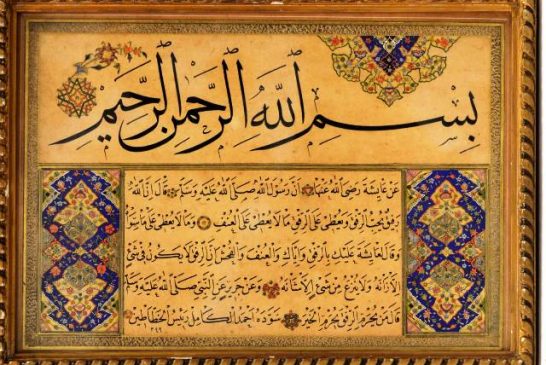 بِسْمِ اللَّهِ الرَّحْمَنِ الرَّحِيمِ
عَنْ عَائِشَةَ رَضِيَ اللهُ عَنْهَا أَنَّ رَسُولَ اللهِ صَلَّى اللهُ عَلَيْهِ وَسَلَّمَ قَالَ إِنَّ اللهَ
رَفِيقٌ يُحِبُّ الرِّفْقَ وَيُعْطِي عَلَى الرِّفْقِ مَا لَا يُعْطِي عَلَى الْعُنْفِ وَمَا لَا يُعْطِي عَلَى مَا سِوَاهُ
وَقَالَ لِعَائِشَةَ عَلَيْكِ بِالرِّفْقِ وَإِيَّاكِ وَالْعُنْفَ وَالْفُحْشَ إِنَّ الرِّفْقَ لَا يَكُونُ فِي شَيْءٍ
إِلَّا زَانَهُ وَلَا يُنْزَعُ مِنْ شَيْءٍ إِلَّا شَانَهُ وَعَنْ جَرِيرٍ عَنِ النَّبِيِّ صَلَّى اللهُ عَلَيْهِ وَسَلَّمَ
قَالَ مَنْ يُحْرَمِ الرِّفْقَ يُحْرَمِ الْخَيْرَ سَوَّدَهُ أَحْمَدُ الْكَامِلُ رَئِيسُ الْخَطَّاطِينَ